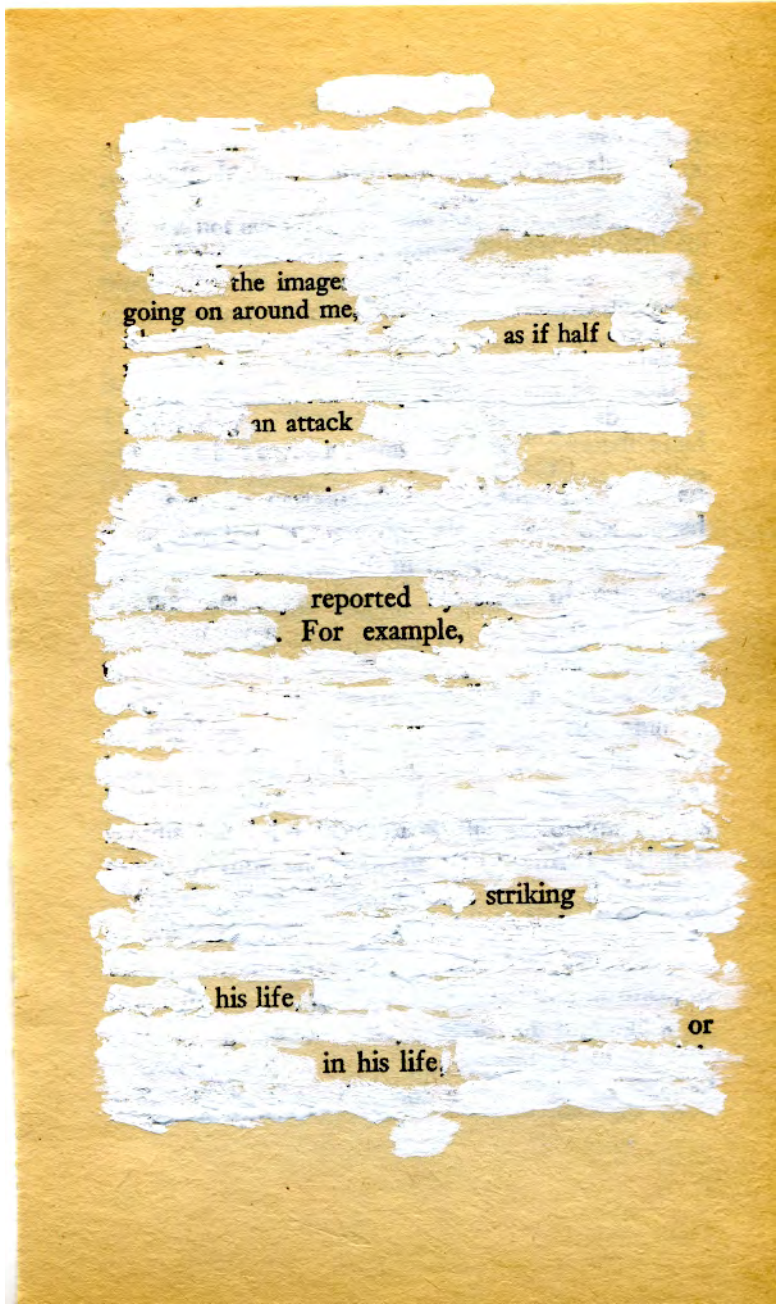 the image
going on around me,
as if half
an attack
reported
. For example,
striking
his life
or
in his life